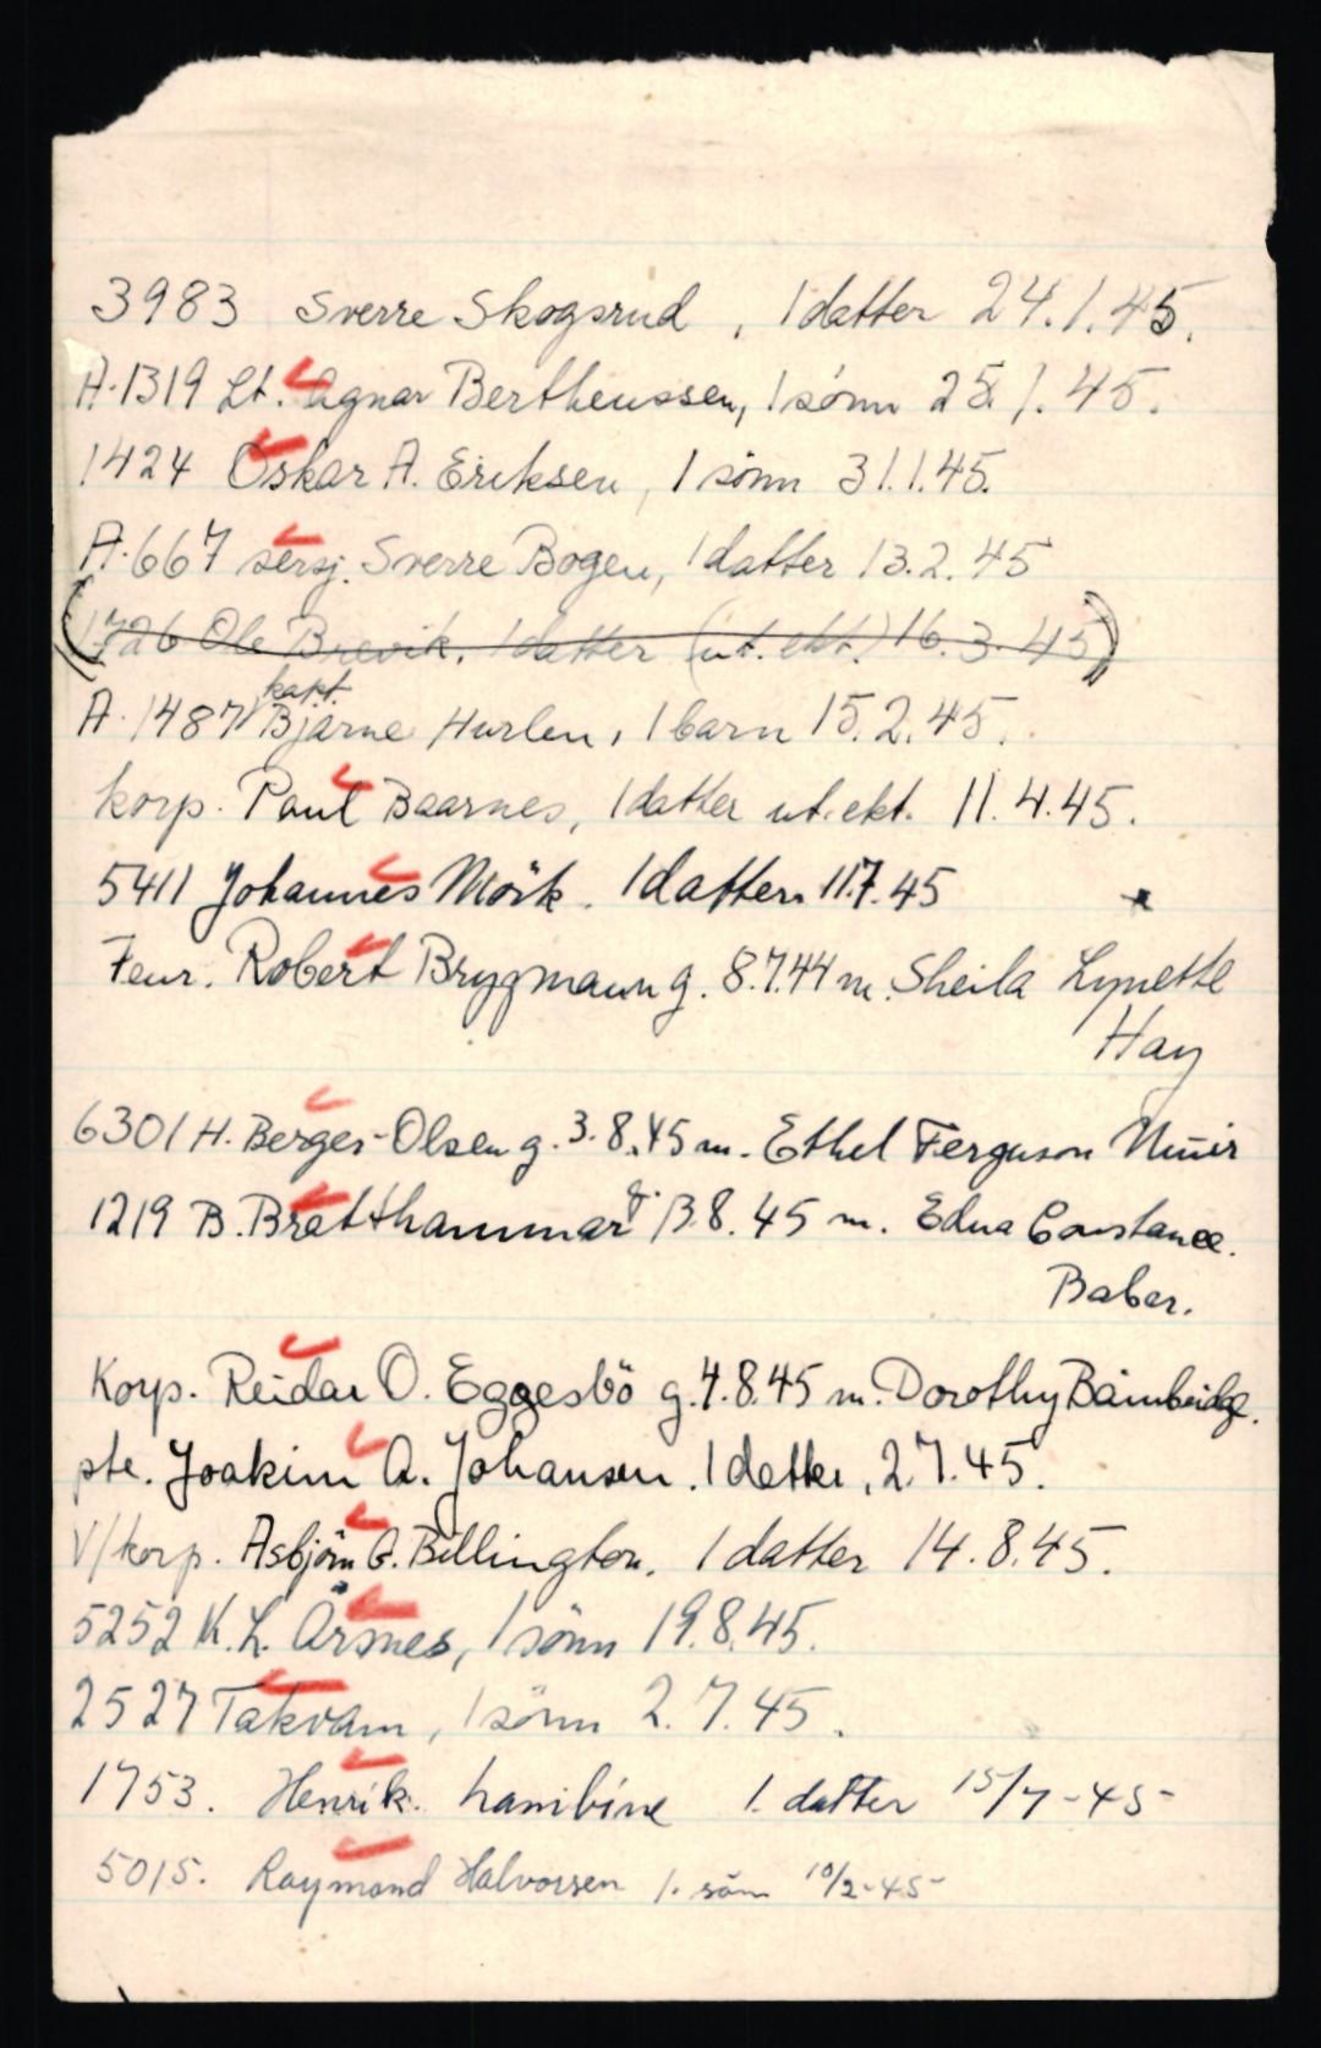 3983 Sverre Skogsrud, 1 datter 24.1.45.
A.1319 Lt. Agnar Bertheussen, 1 sönn 25.1.45.
1424 Oskar A. Eriksen, 1 sönn 31.1.45.
A.667 sersj. Sverre Bogen, 1 datter 13.2.45
(1726 Ole Brevik, 1 datter (ut. ekt.) 16.3.45)
kapt.
A.1487 Bjarne Hurlen, 1 barn 15.2.45.
korp. Paul Baarnes, 1 datter ut. ekt. 11.4.45.
5411 Johannes Mörk. 1 datter 11.7.45
Fenr. Robert Brygmann g. 8.7.44 m. Sheila Lynette
Hay
6301 H. Berger-Olsen g. 3.8.45 m. Ethel Ferguson Muir
1219 B. Bratthammar g. 13.8.45 m. Edna Constance.
Baber.
Korp. Reidar O. Eggesbö g. 4.8.45 m. Dorothy Bainbridge.
pte. Joakim A. Johansen. 1 datter, 2.7.45.
V/korp. Asbjörn G. Billington. 1 datter 14.8.45.
5252 K.L. Årsnes, 1 sönn 19.8.45.
2527 Takvam, 1 sönn 2.7.45.
1753. Henrik. 1. datter 15/7-45-
5015. Raymond Halvorsen 1. sönn 10/2-45-